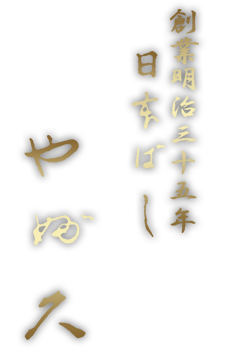 創業明治三十五年
日本ばし
やげ久